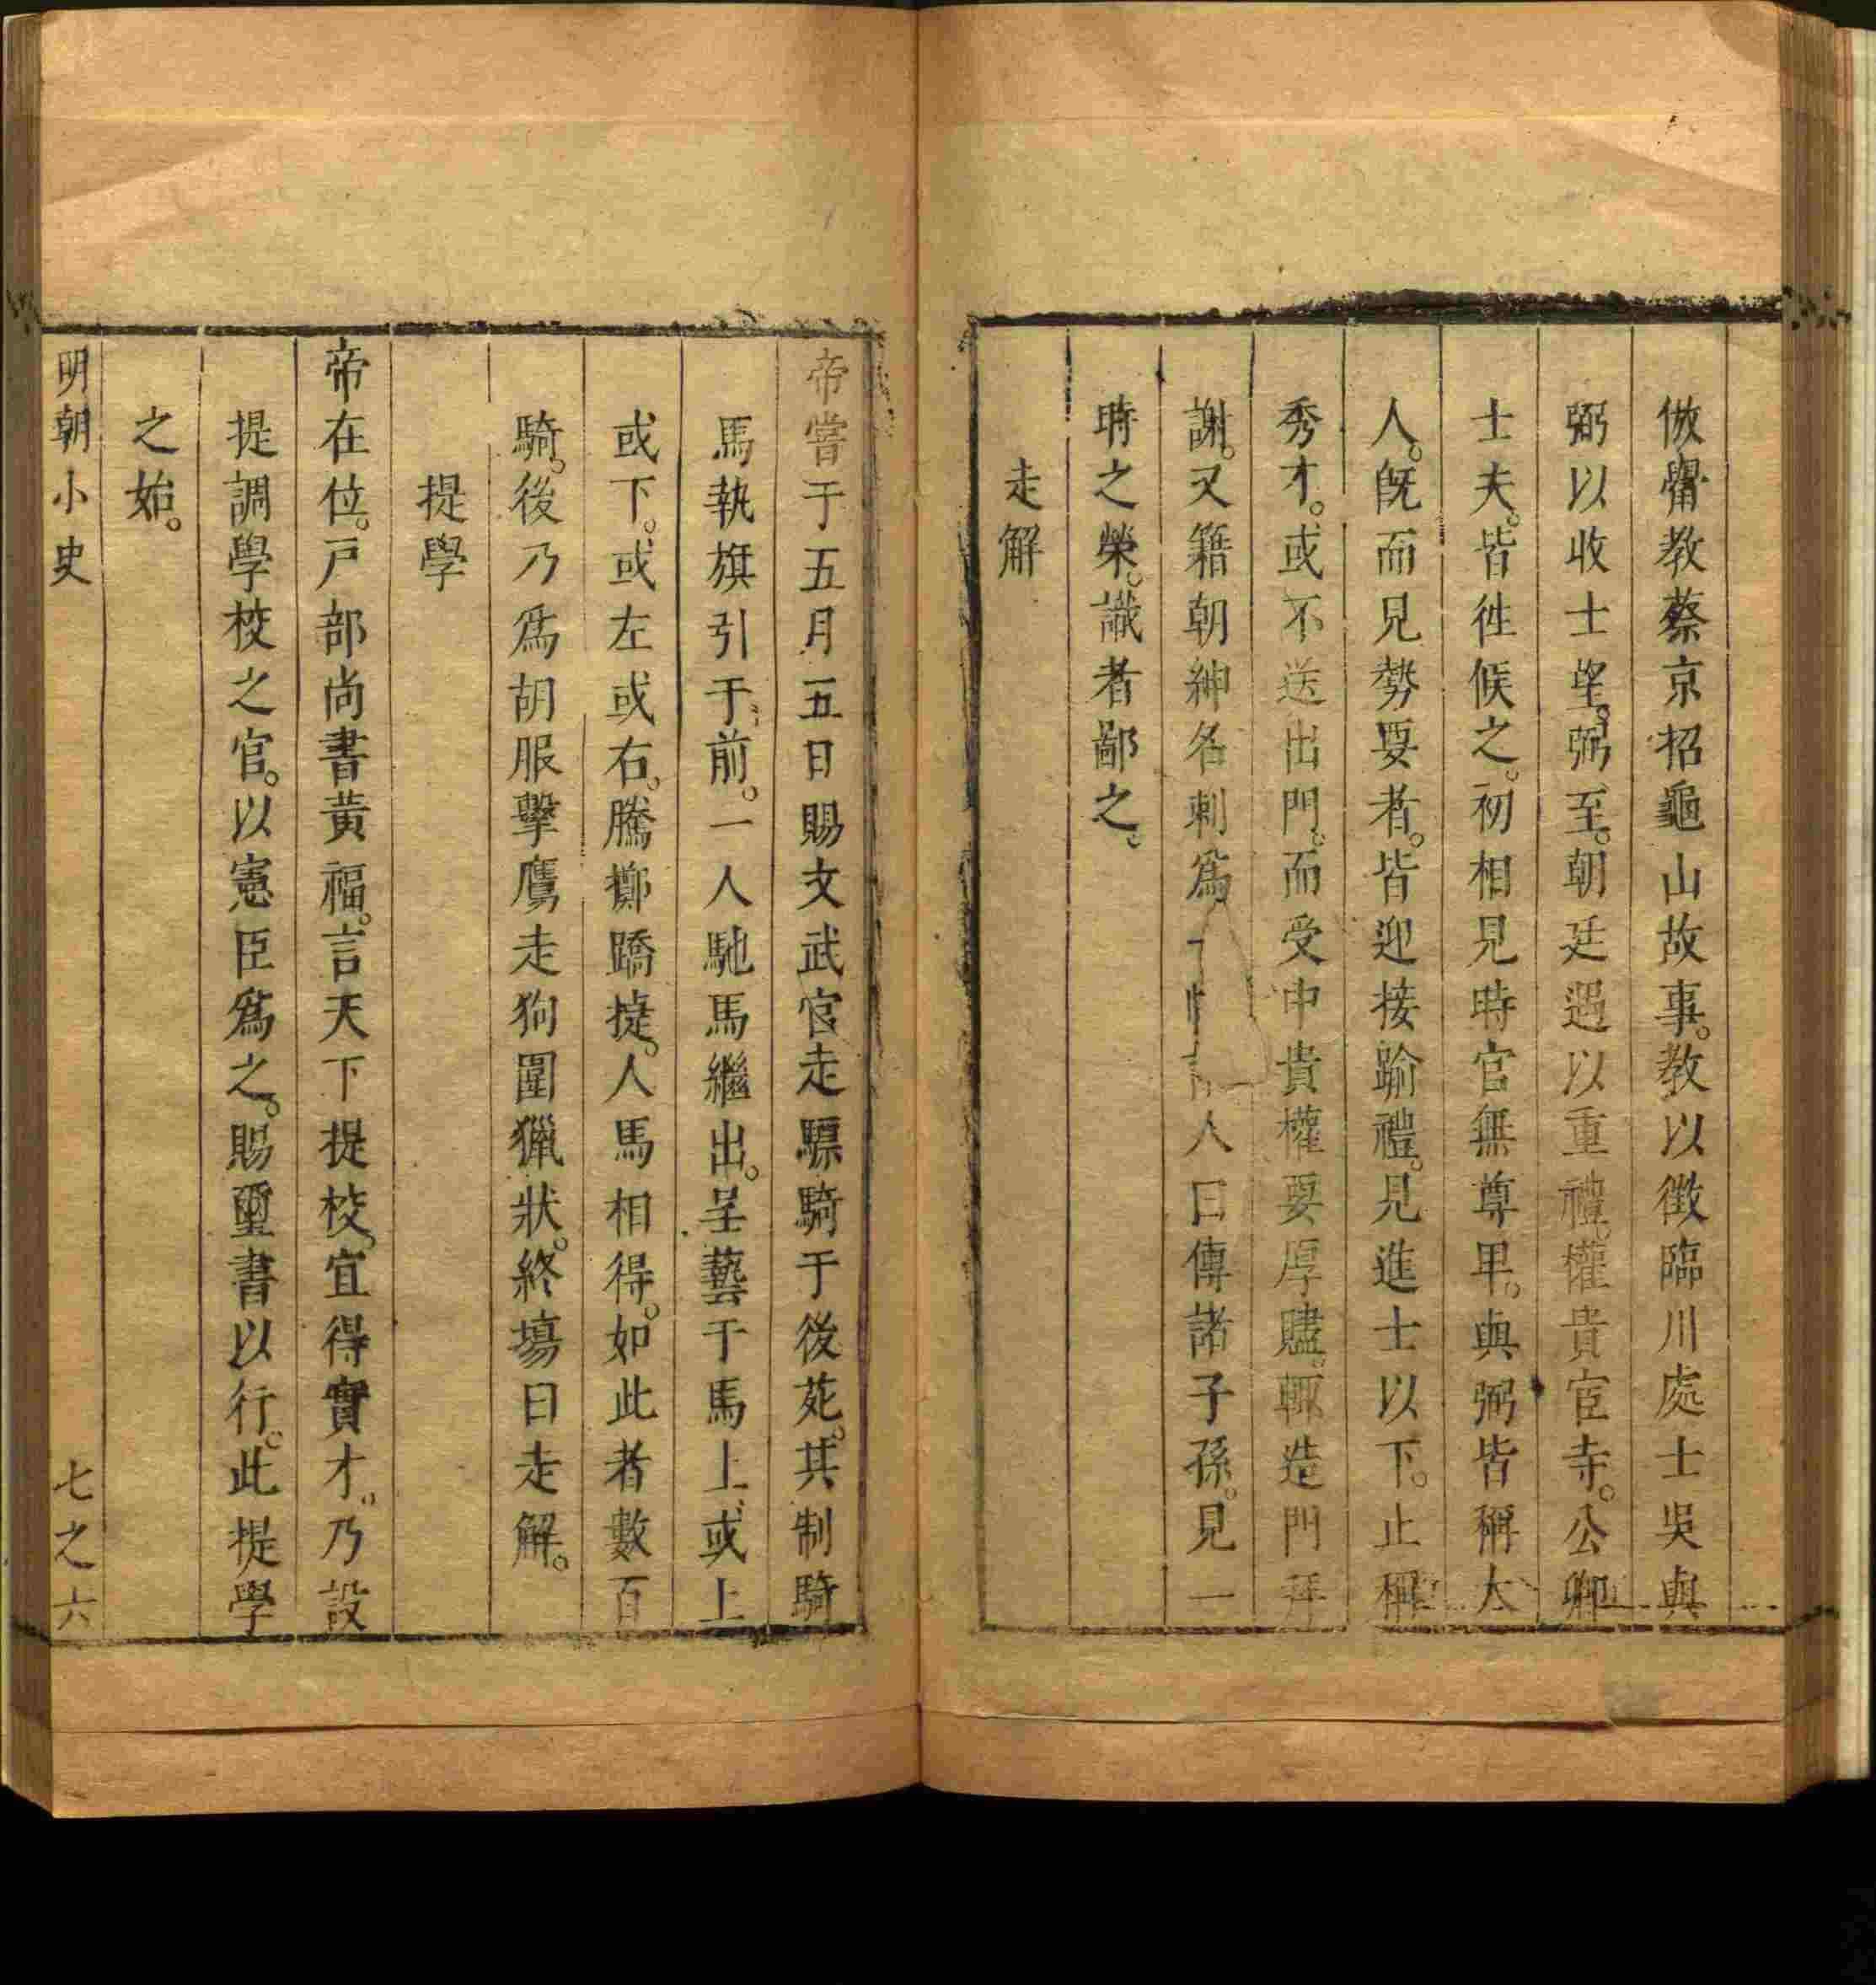 倣黌教蔡京招龜山故事。教以徵臨川處士吳與
弼以收士望。弼至。朝廷遇以重禮。權貴宦寺。公卿
士夫。皆徃候之。初相見時官無尊卑。與弼皆稱大
人。旣而見勢要者。皆迎接踰禮。見進士以下。止稱
秀才。或不送出門。而受中貴權要厚贐。輒造門拜
謝。又籍朝紳名刺爲 人曰傳諸子孫。見一
時之榮。識者鄙之。
走解
帝嘗于五月五日賜文武官走驃騎于後苑。其制騎
馬執旗引于前。一人馳馬繼出。呈藝于馬上或上
或下。或左或右。騰擲蹻㨗。人馬相得。如此者數百
騎。後乃爲胡服擎鷹走狗圍獵狀。終場曰走解。
提學
帝在位。戸部尚書黃福。言天下提校。宜得實才。乃設
提調學校之官。以憲臣爲之。賜璽書以行。此提學
之始。
明朝小史 七之六